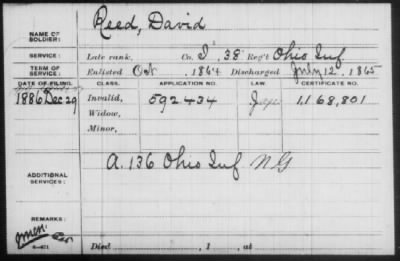 Reed, David
NAME OF SOLDIER:
SERVICE: Late rank, Co. I, 38 Reg't Ohio Inf.
TERM OF SERVICE: Enlisted Oct , 1864 Discharged July 12, 1865
DATE OF FILING. CLASS. APPLICATION NO. LAW. CERTIFICATE NO.
1886 Dec 29 Invalid, 592.434 1,168,801
Widow,
Minor,
ADDITIONAL SERVICES: A. 136 Ohio Inf N G
REMARKS:
Died , 1 , at